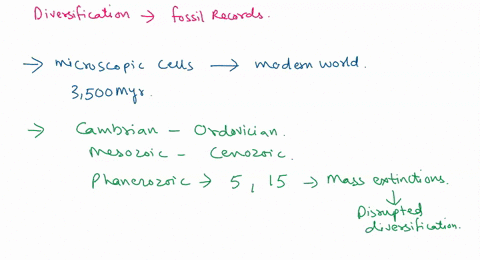 Diversification → fossil Records.
→ microscopic cells → modern world.
3,500 Myr.
→ Cambrian - Ordovician.
Mesozoic - Cenozoic.
Phanerozoic → 5, 15 → Mass extinctions.
↓
Disrupted
diversification.